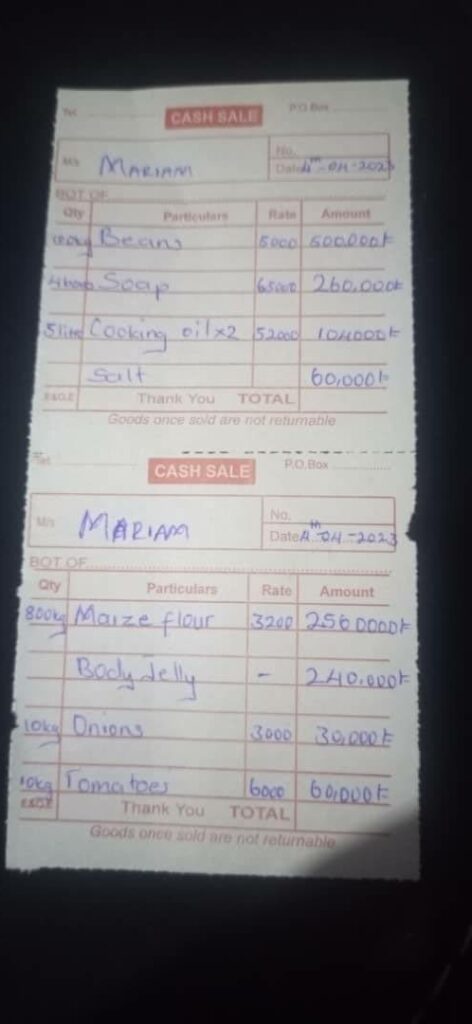 Tel. P.O.Box
CASH SALE
No.
M/s MARIAM
Date 4th-04-2023
BOT OF
Qty Particulars Rate Amount
100kg Beans 5000 500,000/=
Soap 65000 260,000/=
5litre Cooking oil x2 52000 104000/=
Salt 60,000/=
E&O.E Thank You TOTAL
Goods once sold are not returnable
Tel. P.O.Box
CASH SALE
No.
M/s MARIAM
Date 4th-04-2023
BOT OF
Qty Particulars Rate Amount
800kg Maize flour 3200 2560000/=
Body Jelly - 240,000/=
10kg Onions 3000 30,000/=
10kg Tomatoes 6000 60,000/=
E&O.E Thank You TOTAL
Goods once sold are not returnable